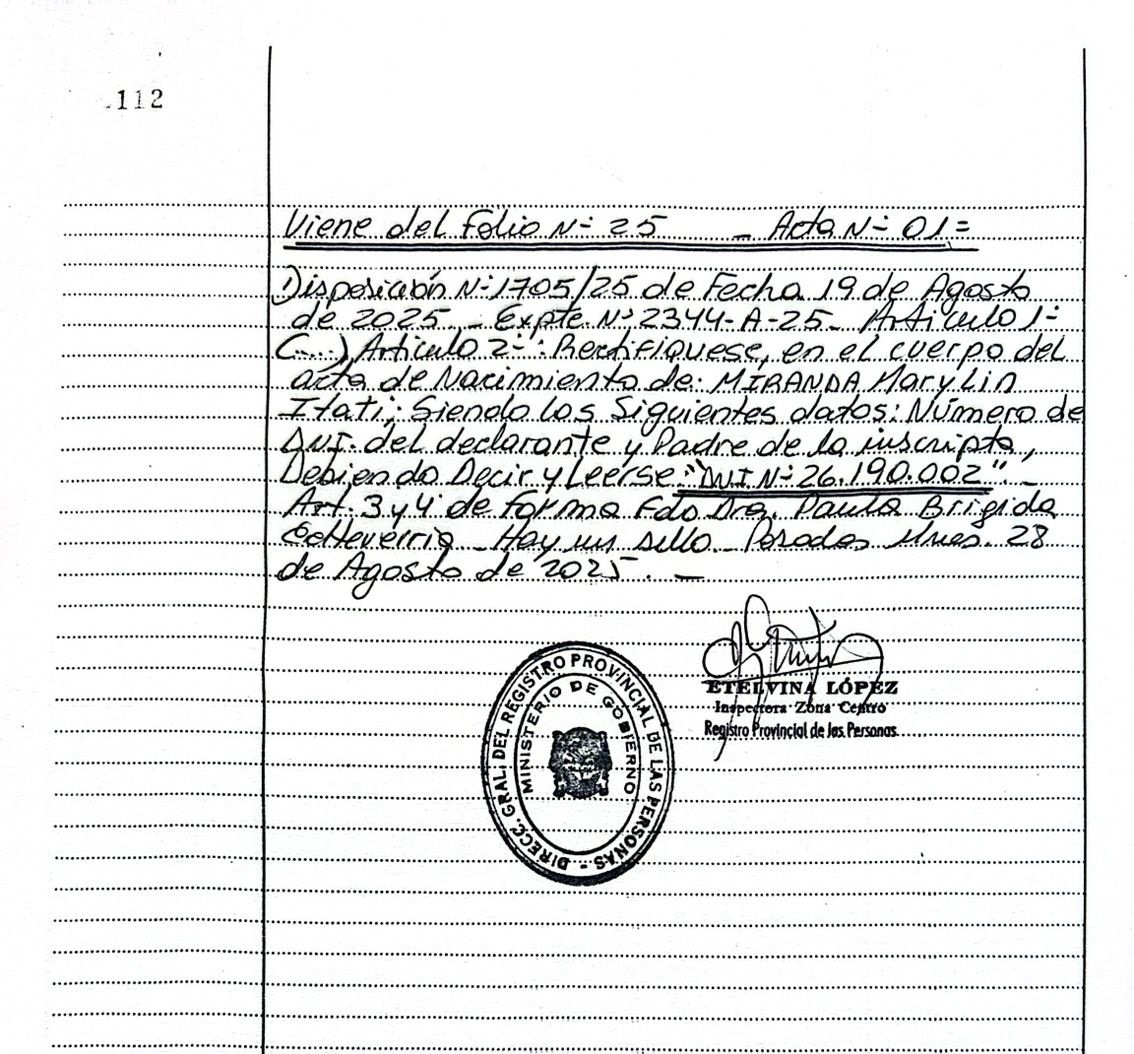 .112
Viene del Folio N- 25 - Acta N- 01=
Disposición N-1705/25 de Fecha 19 de Agosto
de 2025.- Expte Nº 2344-A-25- Artículo 1-
(....) Artículo 2-: Rectifíquese, en el cuerpo del
acta de Nacimiento de: MIRANDA Mary Lin
Itatí; Siendo los Siguientes datos: Número de
DNI. del declarante y Padre de la inscripta,
Debiendo Decir y Leerse "DNI N- 26.190.002".-
Art. 3 y 4 de forma Fdo Dra. Paula Brigida
Echeverria - Hay un sello - Posadas Mnes. 28
de Agosto de 2025. -
ETELVINA LÓPEZ
Inspectora Zona Centro
Registro Provincial de las Personas
DIRECC. GRAL. DEL REGISTRO PROVINCIAL DE LAS PERSONAS -
MINISTERIO DE GOBIERNO